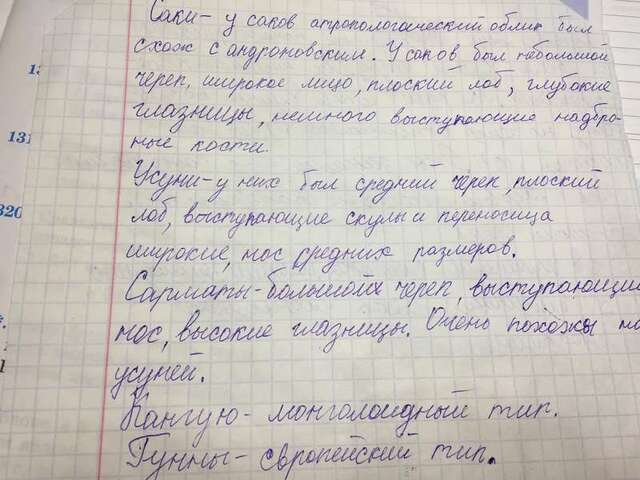 Саки - у саков атропологический облик был
схож с андроновским. У саков был небольшой
череп, широкое лицо, плоский лоб, глубокие
глазницы, немного выступающие надбро
ные кости.
Усуни - у них был средний череп, плоский
лоб, выступающие скулы и переносица
широкие, нос средних размеров.
Сарматы - большой череп, выступающий
нос, высокие глазницы. Очень похожи на
усуней.
Кангюю - монголоидный тип.
Гунны - европейский тип.